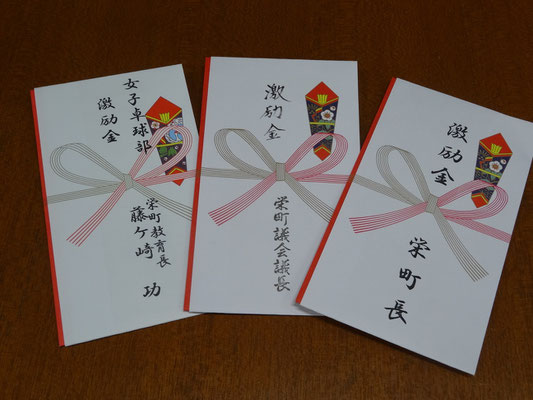 女子卓球部
激励金
栄町教育長
藤ケ崎 功
激励金
栄町議会議長
激励金
栄町長